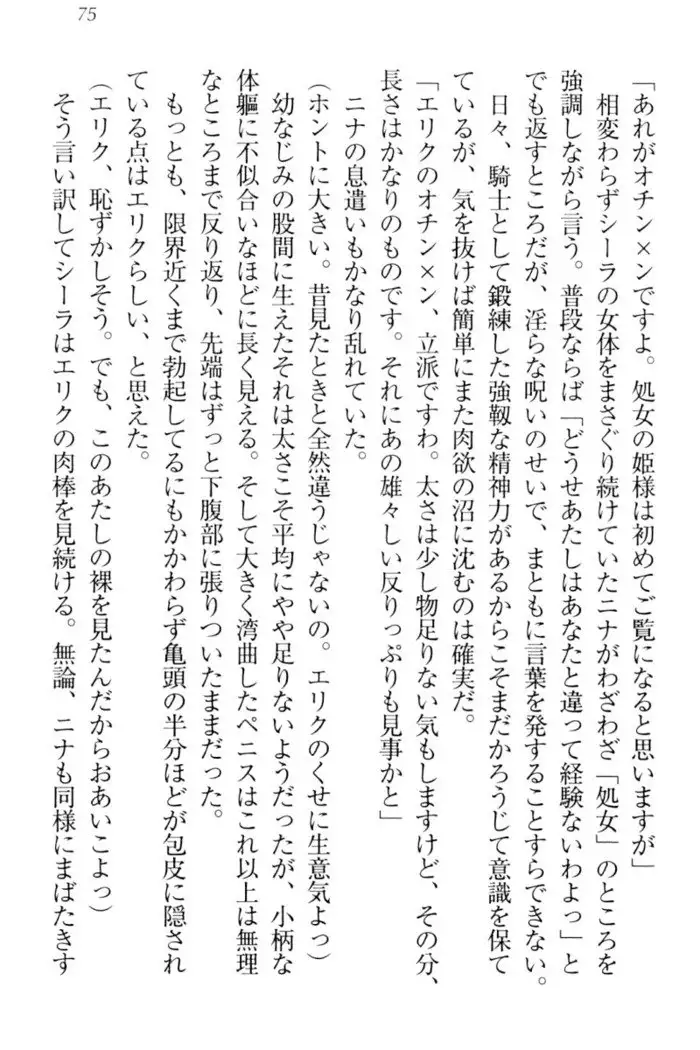 75
「あれがオチン×ンですよ。処女の姫様は初めてご覧になると思いますが」
　相変わらずシーラの女体をまさぐり続けていたニナがわざわざ「処女」のところを
強調しながら言う。普段ならば「どうせあたしはあなたと違って経験ないわよっ」と
でも返すところだが、淫らな呪いのせいで、まともに言葉を発することすらできない。
　日々、騎士として鍛練した強靱な精神力があるからこそまだかろうじて意識を保て
ているが、気を抜けば簡単にまた肉欲の沼に沈むのは確実だ。
「エリクのオチン×ン、立派ですわ。太さは少し物足りない気もしますけど、その分、
長さはかなりのものです。それにあの雄々しい反りっぷりも見事かと」
　ニナの息遣いもかなり乱れていた。
（ホントに大きい。昔見たときと全然違うじゃないの。エリクのくせに生意気よっ）
　幼なじみの股間に生えたそれは太さこそ平均にやや足りないようだったが、小柄な
体軀に不似合いなほどに長く見える。そして大きく湾曲したペニスはこれ以上は無理
なところまで反り返り、先端はずっと下腹部に張りついたままだった。
　もっとも、限界近くまで勃起してるにもかかわらず亀頭の半分ほどが包皮に隠され
ている点はエリクらしい、と思えた。
（エリク、恥ずかしそう。でも、このあたしの裸を見たんだからおあいこよっ）
　そう言い訳してシーラはエリクの肉棒を見続ける。無論、ニナも同様にまばたきす